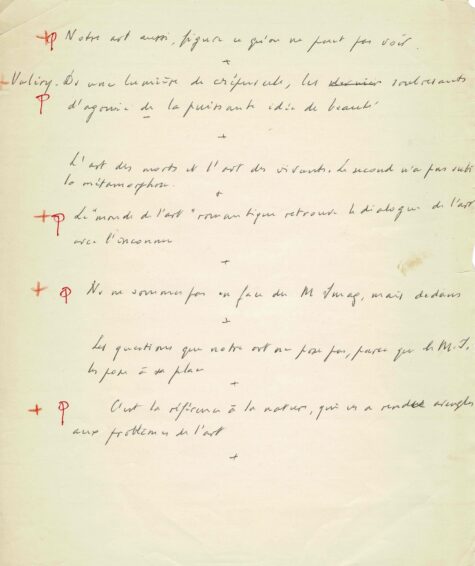 +φ Notre art aussi, figure ce qu'on ne peut pas voir.
+
+ Valéry. Ds une lumière de crépuscule, les soubresauts
φ d'agonie de la puissante idée de beauté
+
L'art des morts et l'art des vivants. Le second n'a pas subi
la métamorphose.
+
+ φ Le "monde de l'art" romantique retrouve le dialogue de l'art
avec l'inconnu
+
+ φ Ns ne sommes pas en face du M Imag, mais dedans
+
Les questions que notre art ne pose pas, parce que le M.I.
les pose à sa place
+
+ φ C'est la référence à la nature, qui ns a rendu aveugles
aux problèmes de l'art
+